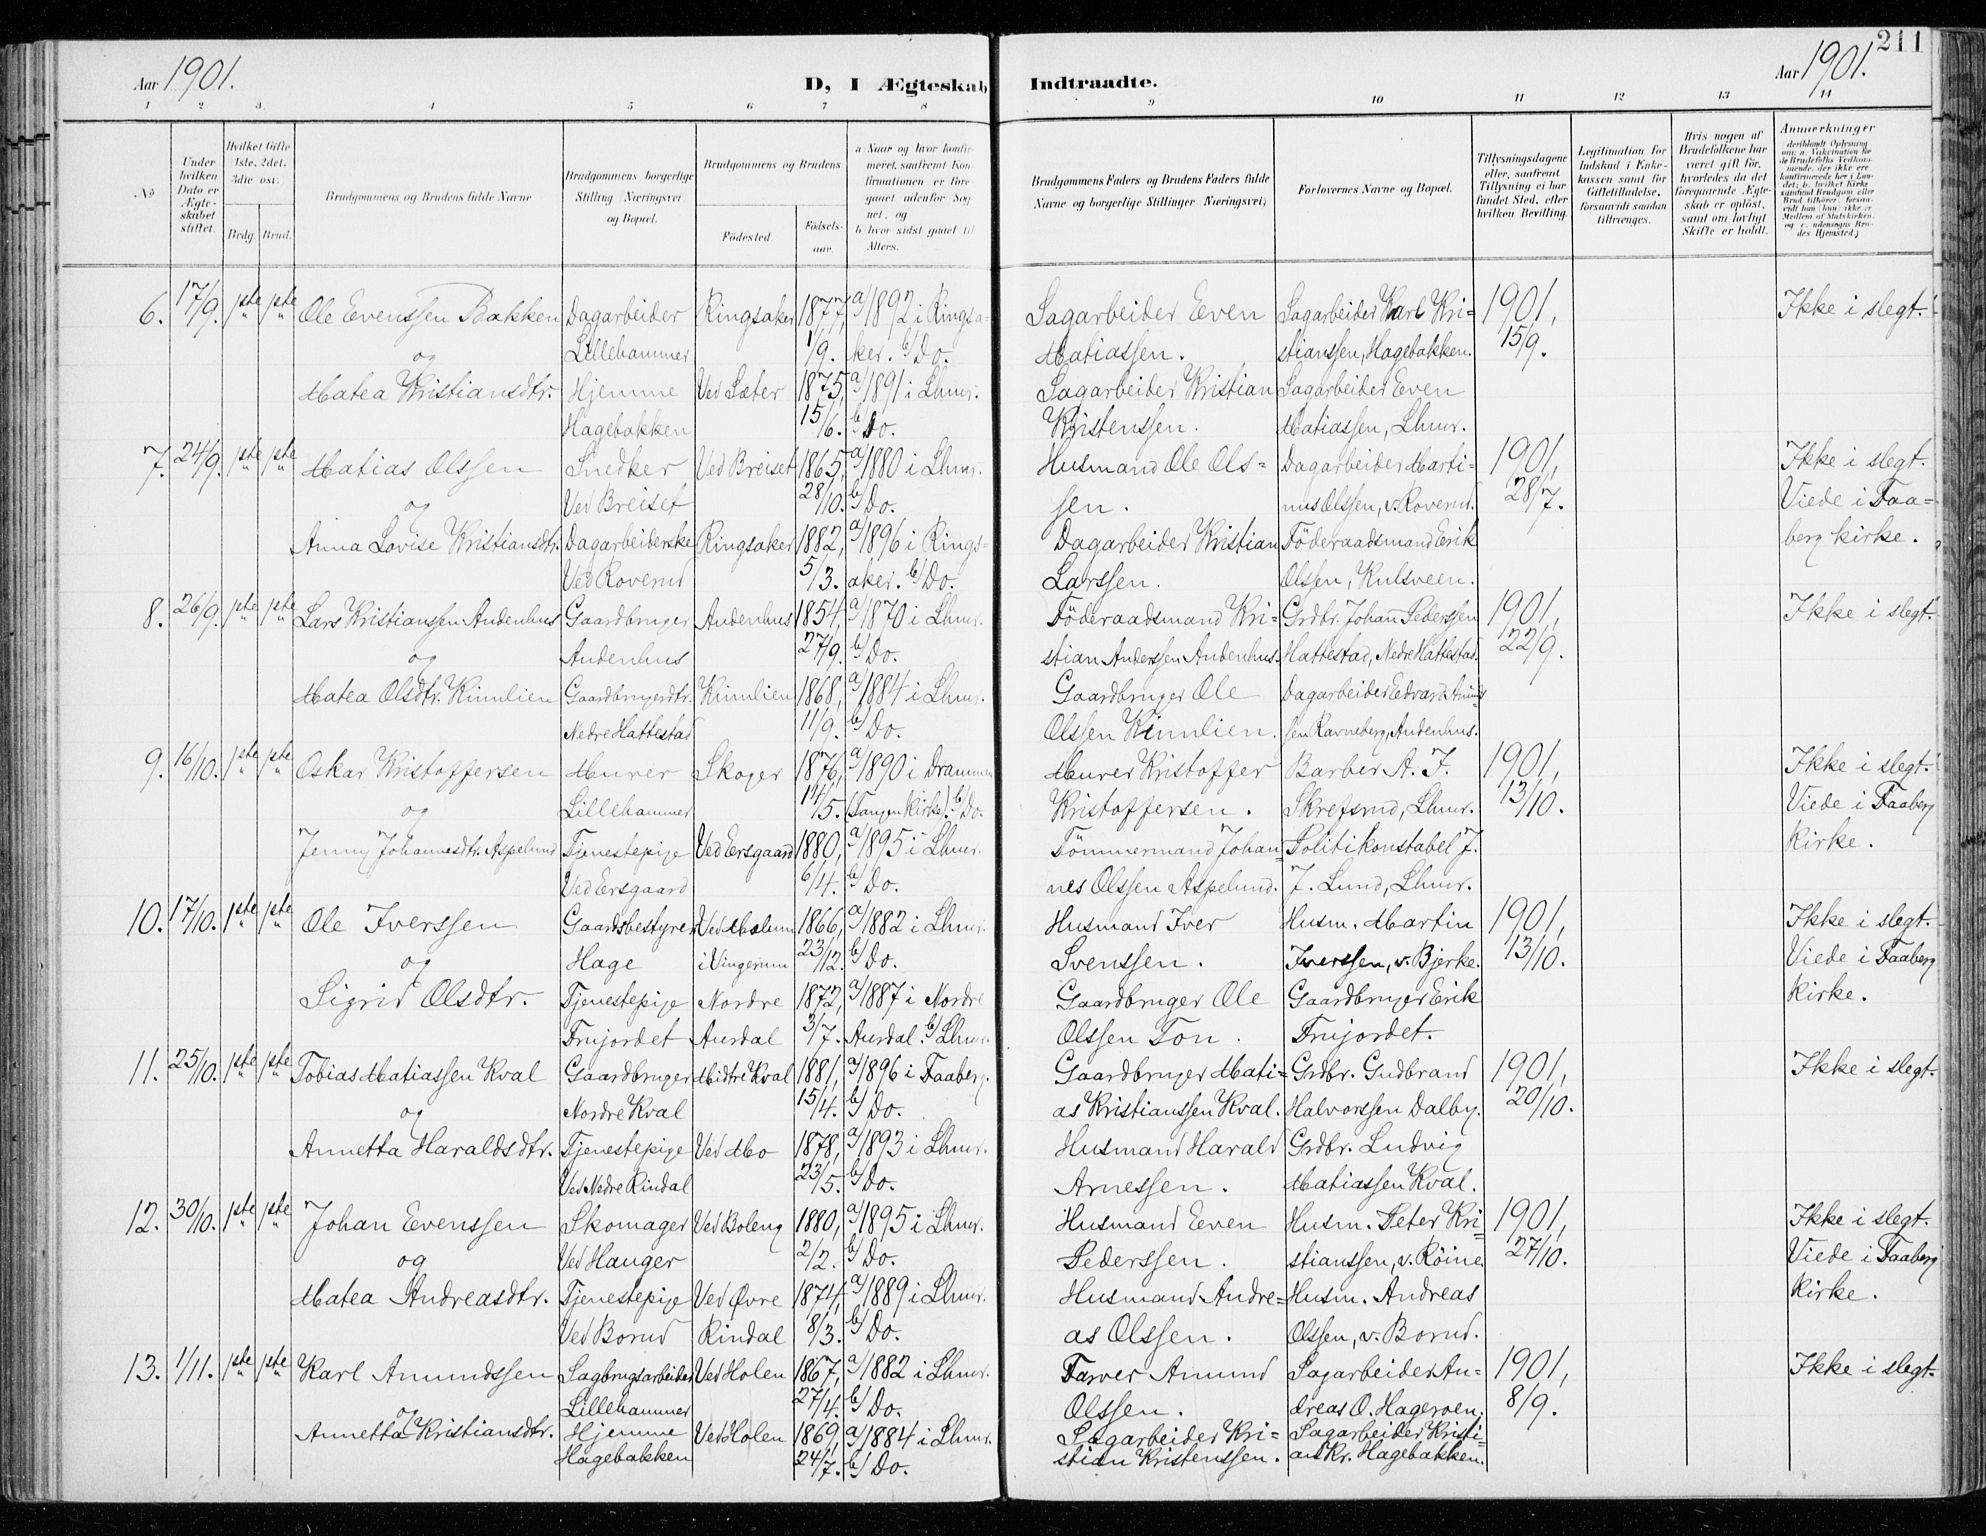 211
Aar 1901. D, I Ægteskab Indtraadte. Aar 1901.
1 2 3 4 5 6 7 8 9 10 11 12 13 14
No
Under hvilken Dato er Ægteskabet stiftet.
Hvilket Gifte 1ste, 2det, 3die osv.
Brdg. Brud.
Brudgommens og Brudens fulde Navne
Brudgommens borgerlige Stilling Næringsvei og Bopæl.
Brudgommens og Brudens
Fødested.
Fødselsaar.
a. Naar og hvor konfirmeret, saafremt Konfirmationen er foregaaet udenfor Sognet, og
b. hvor sidst gaaet til Alters.
Brudgommens Faders og Brudens Faders fulde Navne og borgerlige Stillinger Næringsvei,
Forlovernes Navne og Bopæl.
Tillysningsdagene eller, saafremt Tillysning ei har fundet Sted, efter hvilken Bevilling.
Legitimation for Indskud i Enkekassen samt for Giftetilladelse, forsaavidt saadan tiltrænges.
Hvis nogen af Brudefolkene har været gift før, hvorledes da det foregaaende Ægteskab er opløst, samt om lovligt Skifte er holdt.
Anmerkninger
6. 17/9. 1ste 1ste Ole Evenssen Bakken Dagarbeider Ringsaker 1877, a/1892 i Ringsa- Sagarbeider Even Sagarbeider Karl Kri= 1901, Ikke i slegt.
og Lillehammer 1/9. ker. b/Do. Matiassen. stianssen, Hagebakken. 15/9.
Matea Kristiansdtr. Hjemme Ved Sæter 1875, a/1891 i Lhmr. Sagarbeider Kristian Sagarbeider Even
Hagebakken 15/6. b/Do. Kristenssen. Matiassen, Lhmr.
7. 24/9. 1ste 1ste Matias Olssen Snedker Ved Breiset 1865, a/1880 i Lhmr. Husmand Ole Ols= Dagarbeider Marti= 1901, Ikke i slegt.
og Ved Breiset 28/10. b/Do. sen. nus Olssen, v. Roverud. 28/7. Viede i Faa=
Anna Lovise Kristiansdtr. Dagarbeiderske Ringsaker 1882, a/1896 i Rings= Dagarbeider Kristian Föderaadsmand Erik berg kirke.
Ved Roverud 5/3. aker. b/Do. Larssen. Olssen, Kulsveen.
8. 26/9. 1ste 1ste Lars Kristianssen Audenhus Gaardbruger Audenhus 1854, a/1870 i Lhmr. Föderaadsmand Kri- Grdbr. Johan Pederssen 1901, Ikke i slegt.
og Audenhus 27/9. b/Do. stian Anderssen Audenhus. Hattestad, Nedre Hattestad. 22/9.
Matea Olsdtr. Kinnlien Gaardbrugerdtr. Kinnlien 1868, a/1884 i Lhmr. Gaardbruger Ole Dagarbeider Edvard
Nedre Hattestad 11/9. b/Do. Olssen Kinnlien. sen Ravneberg, Audenhus.
9. 16/10. 1ste 1ste Oskar Kristoffersen Murer Skoger 1876, a/1890 i Drammen Murer Kristoffer Barber A. J. 1901, Ikke i slegt.
og Lillehammer 14/5. (Tangen kirke). b/Do. Kristoffersen. Skrefsrud, Lhmr. 13/10. Viede i Faaberg
Jenny Johannesdtr. Aspelund Tjenestepige Ved Ersgaard 1880, a/1895 i Lhmr. Tömmermand Johan= Politikonstabel J. kirke.
Ved Ersgaard 6/4. b/Do. nes Olssen Aspelund. J. Lund, Lhmr.
10. 17/10. 1ste 1ste Ole Iverssen Gaardsbestyrer Ved Molum 1866, a/1882 i Lhmr. Husmand Iver Husm. Martin 1901, Ikke i slegt.
og Hage i Vingerum 23/12. b/Do. Svenssen. Iverssen, v. Bjerke. 13/10. Viede i Faaberg
Sigrid Olsdtr. Tjenestepige Nordre 1872, a/1887 i Nordre Gaardbruger Ole Gaardbruger Erik kirke.
Frujordet Aurdal 3/7. Aurdal. b/Lhmr. Olssen Ton. Frujordet.
11. 25/10. 1ste 1ste Tobias Matiassen Kval Gaardbruger Midtre Kval 1881, a/1896 i Faaberg. Gaardbruger Mati= Grdbr. Gudbrand 1901, Ikke i slegt.
og Nordre Kval 15/4. b/Do. as Kristianssen Kval. Halvorssen Dalby. 20/10.
Annetta Haraldsdtr. Tjenestepige Ved Mo 1878, a/1893 i Lhmr. Husmand Harald Grdbr. Ludvig
Ved Nedre Rindal 23/5. b/Do. Arnessen. Matiassen Kval.
12. 30/10. 1ste 1ste Johan Evenssen Skomager Ved Boleng 1880, a/1895 i Lhmr. Husmand Even Husm. Peter Kri= 1901, Ikke i slegt.
og Ved Hauger 2/2. b/Do. Pederssen. stianssen, v. Röine. 27/10. Viede i Faaberg
Matea Andreasdtr. Tjenestepige Ved Øvre 1874, a/1889 i Lhmr. Husmand Andre= Husm. Andreas kirke.
Ved Borud Rindal 8/3. b/Do. as Olssen. Olssen, v. Borud.
13. 1/11. 1ste 1ste Karl Amundssen Sagbrugsarbeider Ved Holen 1867, a/1882 i Lhmr. Farver Amund Sagarbeider An- 1901, Ikke i slegt.
og Lillehammer 27/4. b/Do. Olssen. dreas O. Hageroen. 8/9.
Annetta Kristiansdtr. Hjemme Ved Holen 1869, a/1884 i Lhmr. Sagarbeider Kri- Sagarbeider Kristi=
Hagebakken 24/7. b/Do. stian Kristenssen. an Kr. Hagebakken.